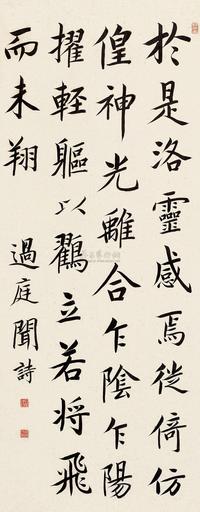 於是洛靈感焉徙倚仿
偟神光離合乍陰乍陽
擢輕軀以鸛立若将飛
而未翔
過庭聞詩